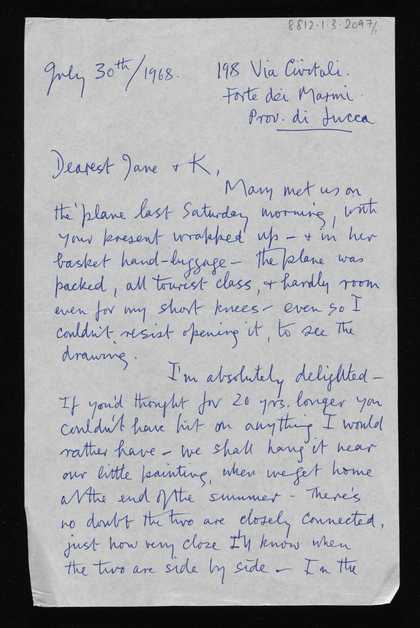 8812-1-3-2097/1
July 30th/1968.
198 Via Civitali.
Forte dei Marmi.
Prov. di Lucca
Dearest Jane & K,
Mary met us on
the 'plane last Saturday morning, with
your present wrapped up – & in her
basket hand-luggage – the plane was
packed, all tourist class, & hardly room
even for my short knees – even so I
couldn't resist opening it, to see the
drawing.
I'm absolutely delighted –
If you'd thought for 20 yrs. longer you
couldn't have hit on anything I would
rather have – we shall hang it near
our little painting, when we get home
at the end of the summer – There's
no doubt the two are closely connected,
just how very close I'll know when
the two are side by side – I'm the